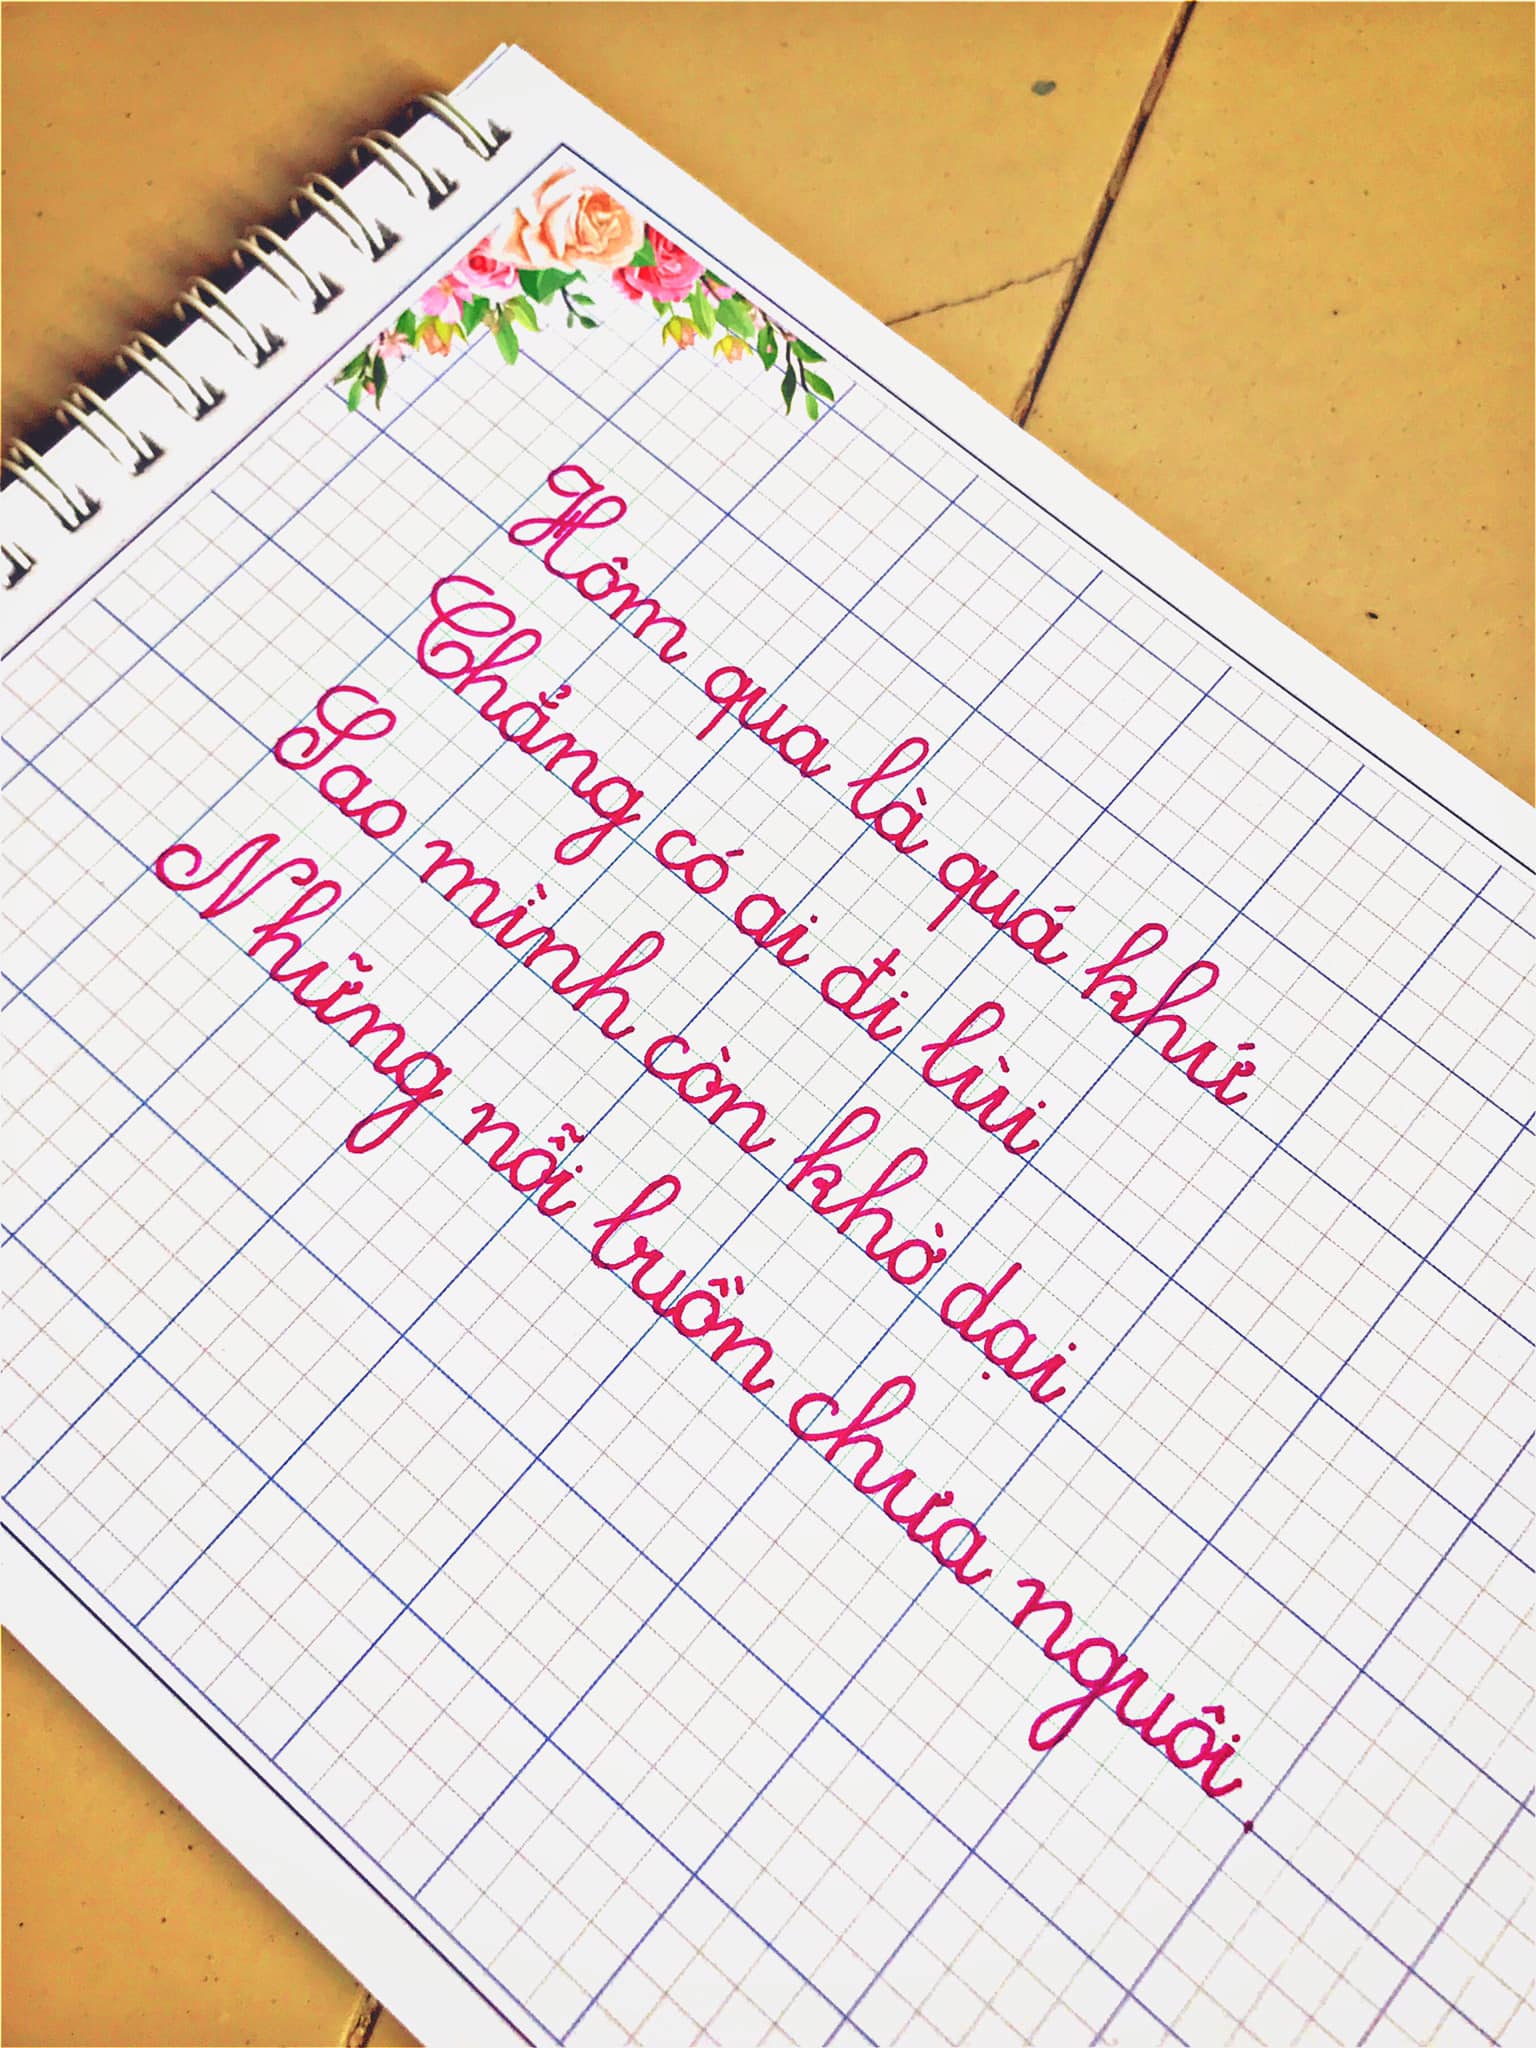 Hôm qua là quá khứ
Chẳng có ai đi lùi
Sao mình còn khờ dại
Những nỗi buồn chưa nguôi.